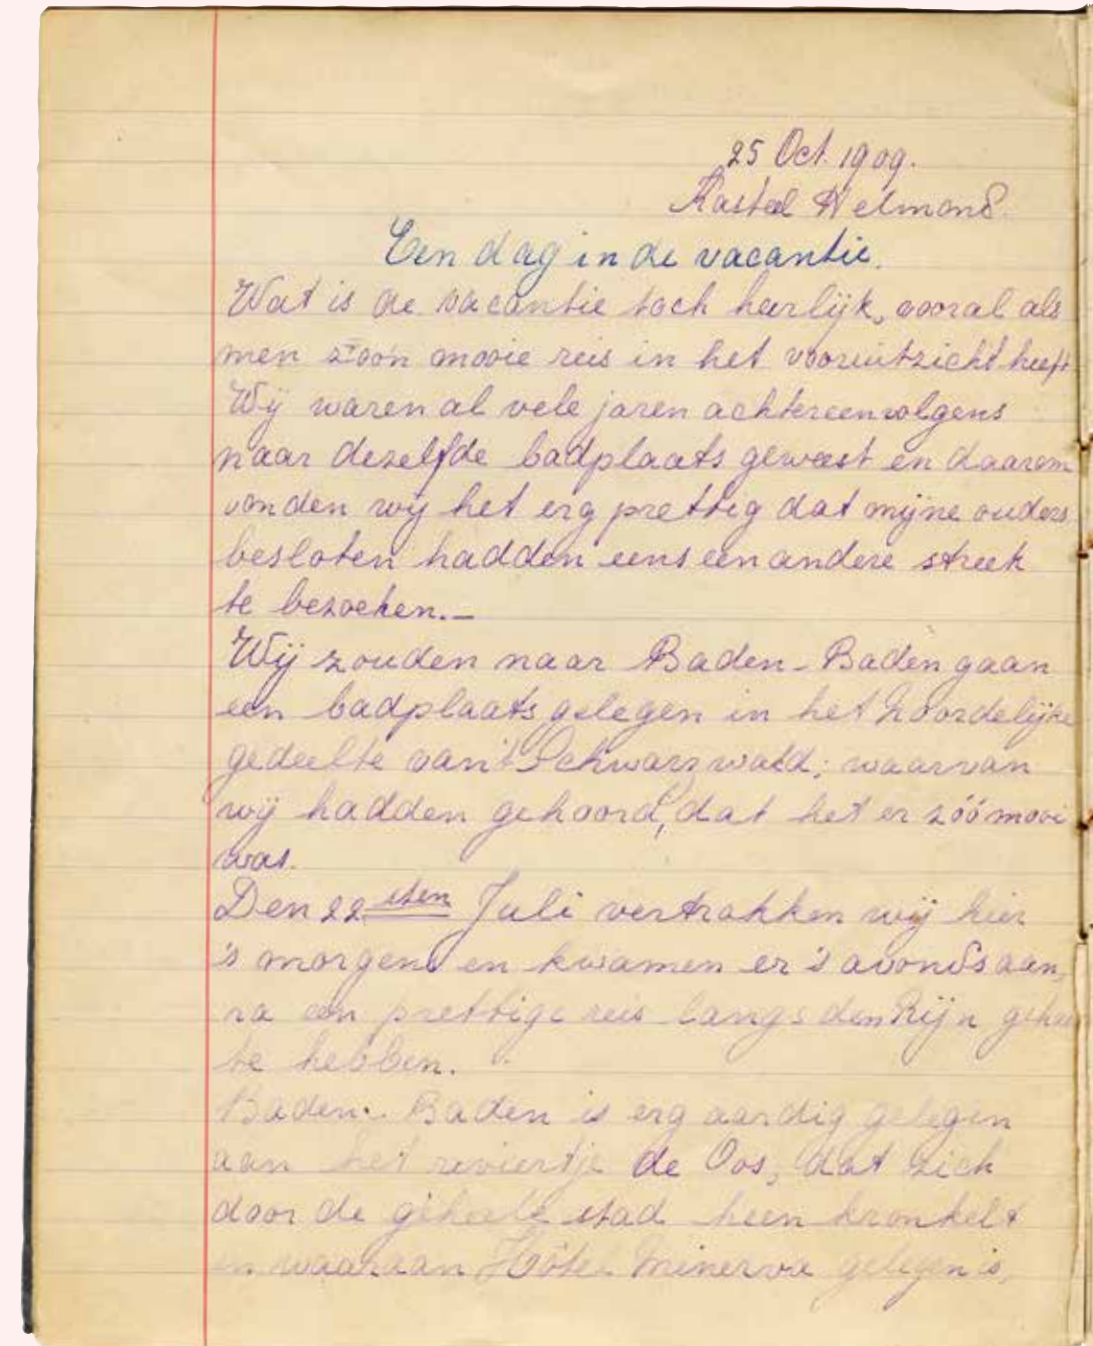 25 Oct. 1909.
Kasteel Helmond.
Een dag in de vacantie.
Wat is de vacantie toch heerlijk, vooral als
men zoo'n mooie reis in het vooruitzicht heeft
Wij waren al vele jaren achtereenvolgens
naar dezelfde badplaats geweest en daarom
vonden wij het erg prettig dat mijne ouders
besloten hadden eens een andere streek
te bezoeken.—
Wij zouden naar Baden-Baden gaan
een badplaats gelegen in het Noordelijke
gedeelte van 't Schwarzwald; waarvan
wij hadden gehoord, dat het er zóó mooi
was.
Den 22sten Juli vertrokken wij hier
's morgens en kwamen er 's avonds aan,
na een prettige reis langs den Rijn
te hebben.
Baden-Baden is erg aardig gelegen
aan het reviertje de Oos, dat zich
door de geheele stad heen kronkelt
en waaraan Hôtel Minerva gelegen is,